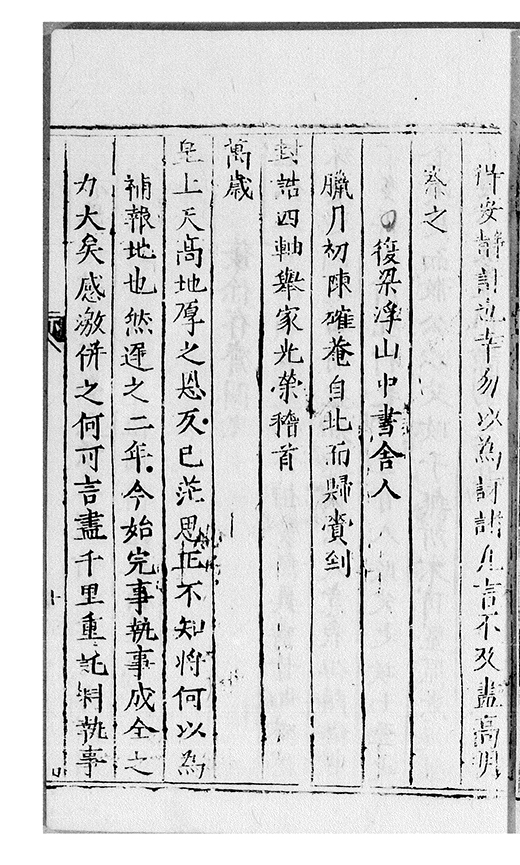 得安靜計也幸勿以為訝諸凡言不及盡高明
察之
復梁浮山中書舍人
臘月初陳確菴自北而歸賚到
封誥四軸舉家光榮稽首
萬歲
皇上天高地厚之恩反已茫思正不知將何以為
補報地也然遲之二年今始完事執事成全之
力大矣感激併之何可言盡千里重託料執事